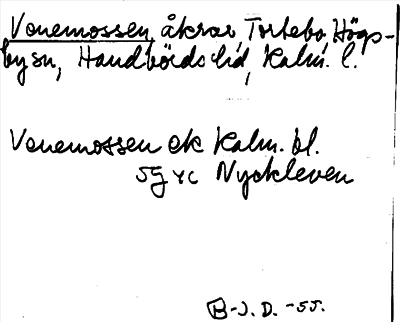 Venemossen, åkrar Torsebo, Högs-
bysn, Handbörds hd, Kalm. l.
Venemossen ek Kalm. bl.
5g vc Nyckleven
B-J. D. -55.